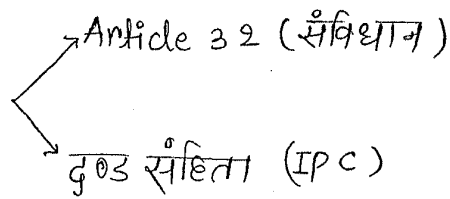 Article 32 (संविधान)
दण्ड संहिता (IPC)